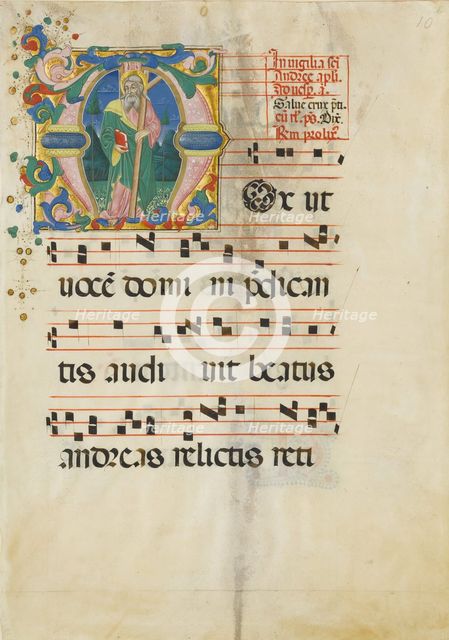 10
In vigilia sci
Andree apli
Ad uesp. a.
Salue crux p̄ti
Rm prolix
Mox ut
uocē domi ni p̄dican
tis audi uit beatus
andreas relictis reti
Heritage
Heritage
Heritage
Heritage
Heritage
Heritage
Heritage
Heritage